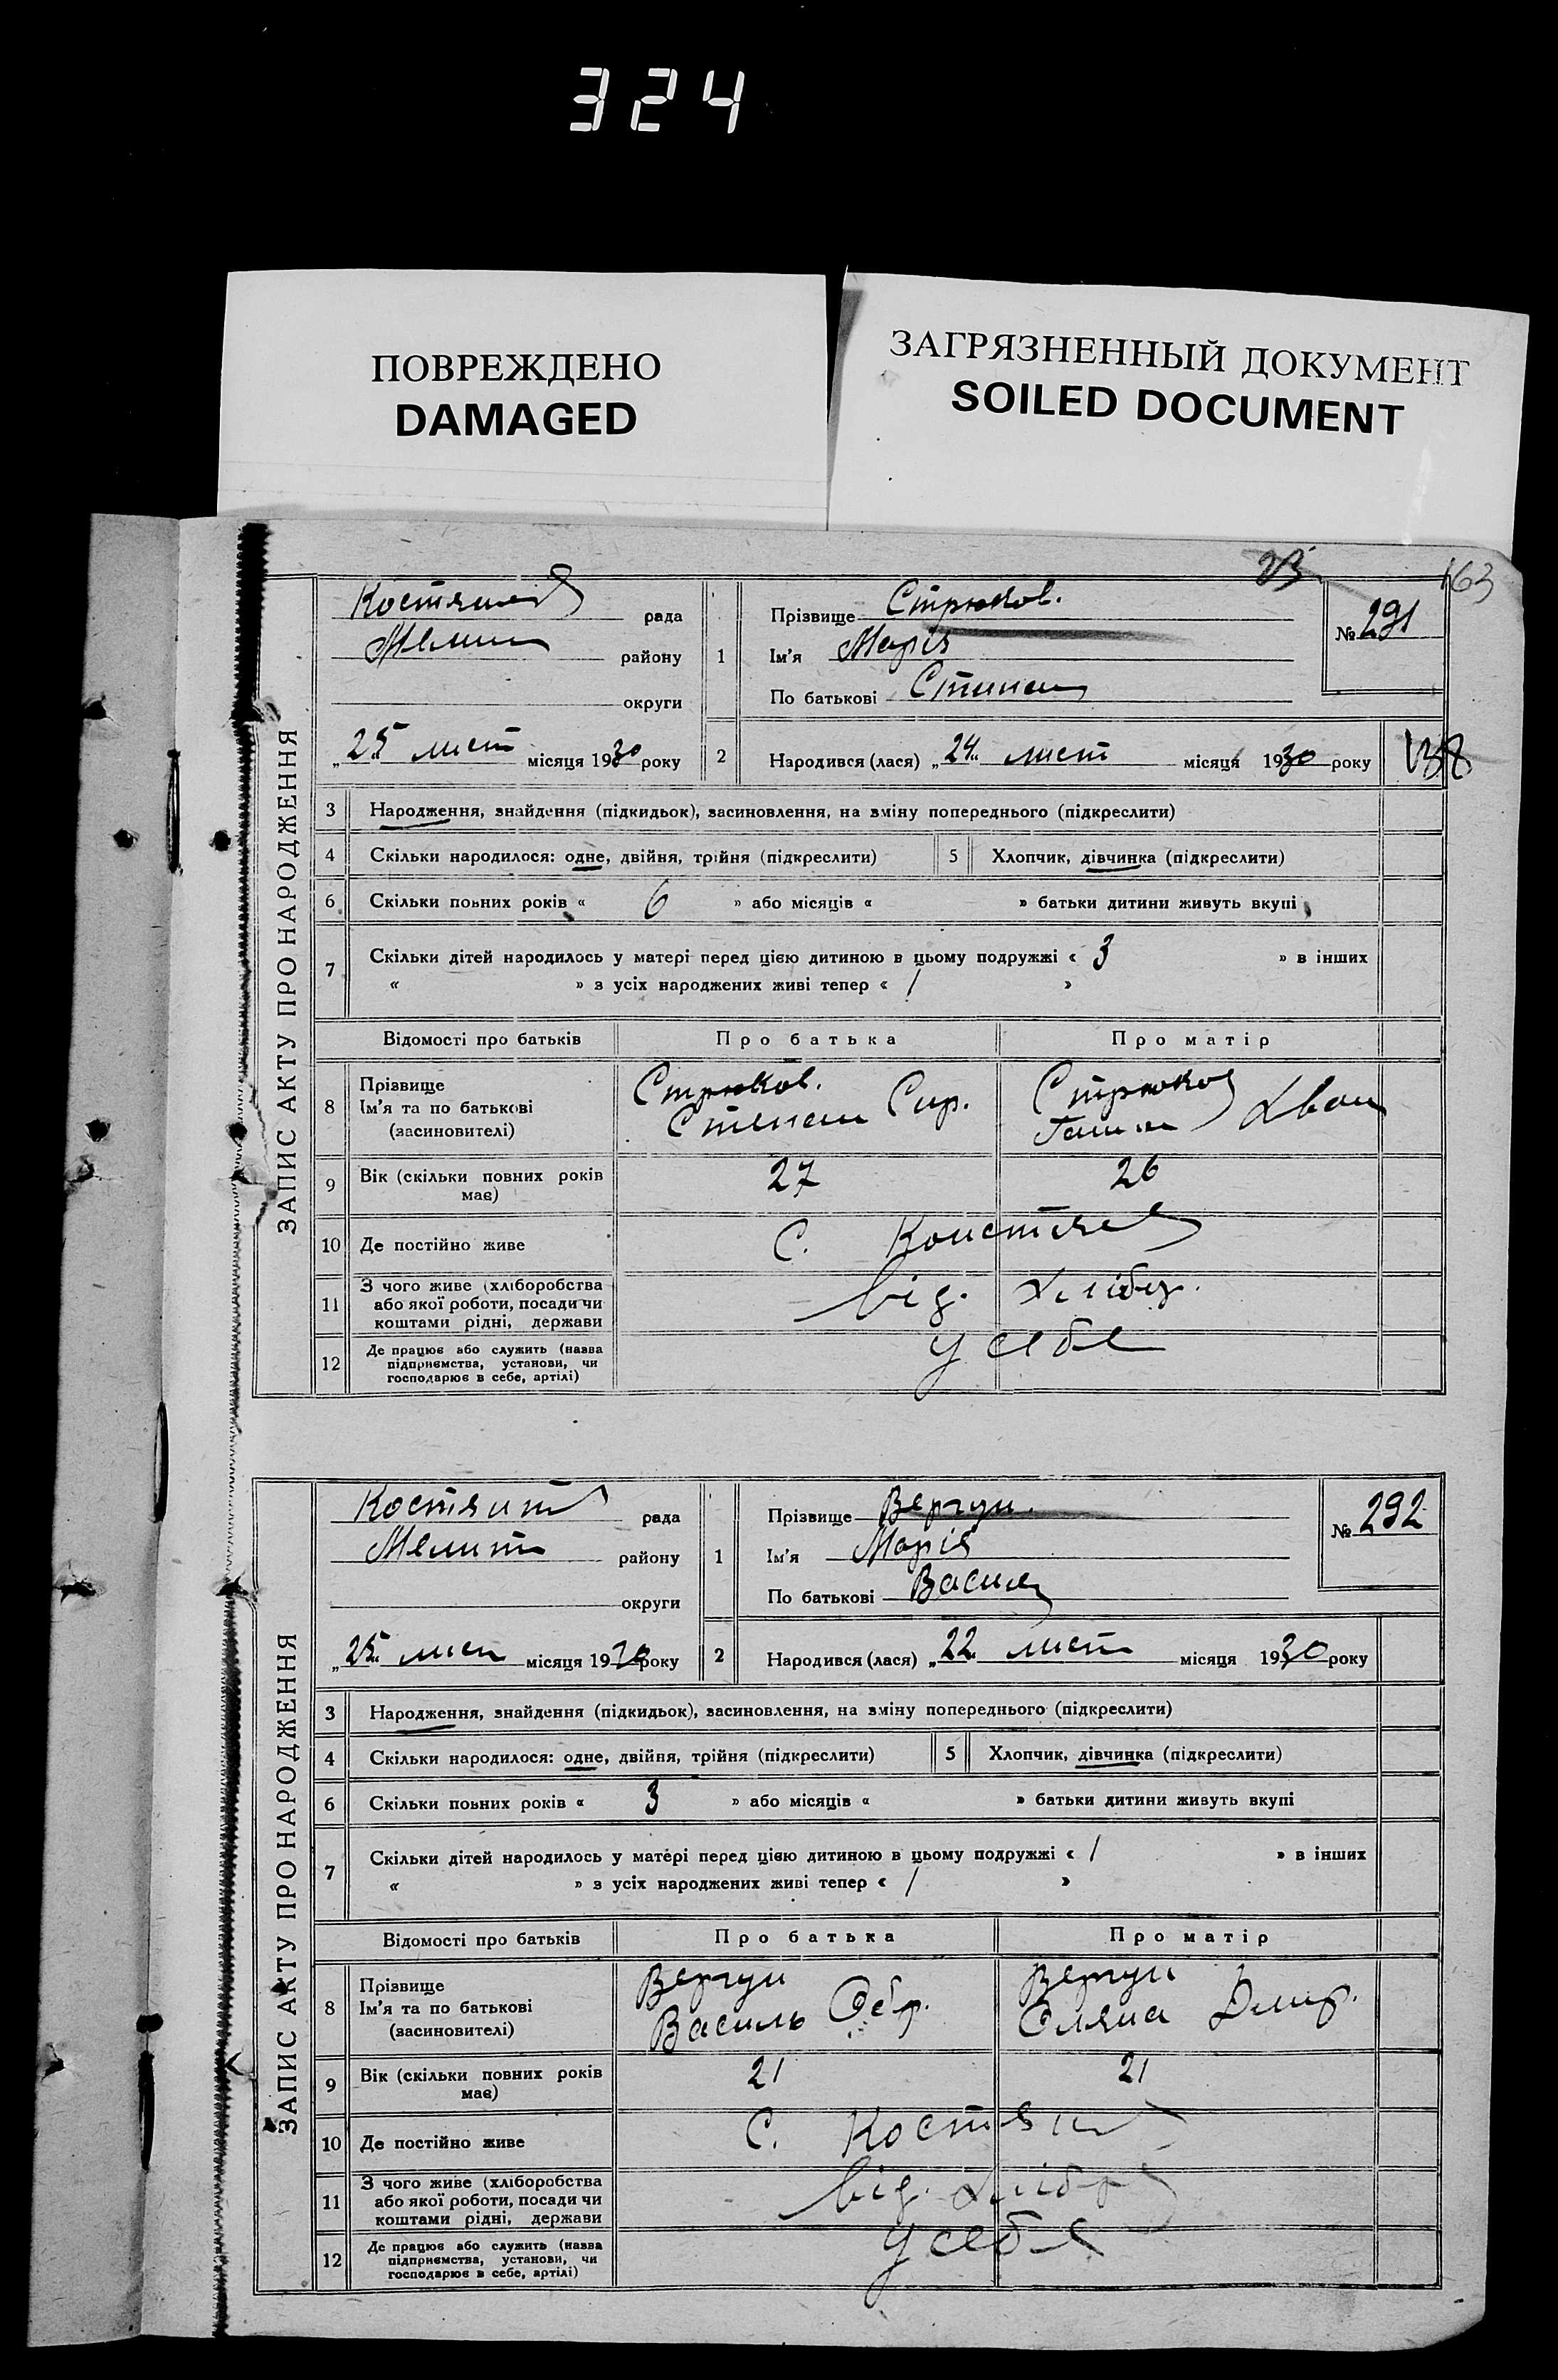 324
ПОВРЕЖДЕНО
DAMAGED
ЗАГРЯЗНЕННЫЙ ДОКУМЕНТ
SOILED DOCUMENT
163
ЗАПИС АКТУ ПРО НАРОДЖЕННЯ
рада
району
округи
„25“ лист місяця 1930 року
1
Прізвище Стрюков.
Ім'я Марія
По батькові Степан
№ 291
2
Народився (лася) „24“ лист місяця 1930 року
138
3 Народження, знайдення (підкидьок), засиновлення, на зміну попереднього (підкреслити)
4 Скільки народилося: одне, двійня, трійня (підкреслити)
5 Хлопчик, дівчинка (підкреслити)
6 Скільки повних років « 6 » або місяців « » батьки дитини живуть вкупі
7 Скільки дітей народилось у матері перед цією дитиною в цьому подружжі « 3 » в інших
« » з усіх народжених живі тепер « 1 »
Відомості про батьків Про батька Про матір
8 Прізвище
Ім'я та по батькові
(засиновителі)
Стрюков.
Степан
Стрюков
Іван
9 Вік (скільки повних років
має)
27 26
10 Де постійно живе
С.
11 З чого живе (хліборобства
або якої роботи, посади чи
коштами рідні, держави
від. хлібор.
12 Де працює або служить (назва
підприємства, установи, чи
господарює в себе, артілі)
у себе
ЗАПИС АКТУ ПРО НАРОДЖЕННЯ
рада
району
округи
„25“ лист місяця 1930 року
1
Прізвище Вергун.
Ім'я Марія
По батькові Васил
№ 292
2
Народився (лася) „22“ лист місяця 1930 року
3 Народження, знайдення (підкидьок), засиновлення, на зміну попереднього (підкреслити)
4 Скільки народилося: одне, двійня, трійня (підкреслити)
5 Хлопчик, дівчинка (підкреслити)
6 Скільки повних років « 3 » або місяців « » батьки дитини живуть вкупі
7 Скільки дітей народилось у матері перед цією дитиною в цьому подружжі « 1 » в інших
« » з усіх народжених живі тепер « 1 »
Відомості про батьків Про батька Про матір
8 Прізвище
Ім'я та по батькові
(засиновителі)
Вергун
Василь
Вергун
Оляна Дмир.
9 Вік (скільки повних років
має)
21 21
10 Де постійно живе
С.
11 З чого живе (хліборобства
або якої роботи, посади чи
коштами рідні, держави
від. хлібор
12 Де працює або служить (назва
підприємства, установи, чи
господарює в себе, артілі)
у себе